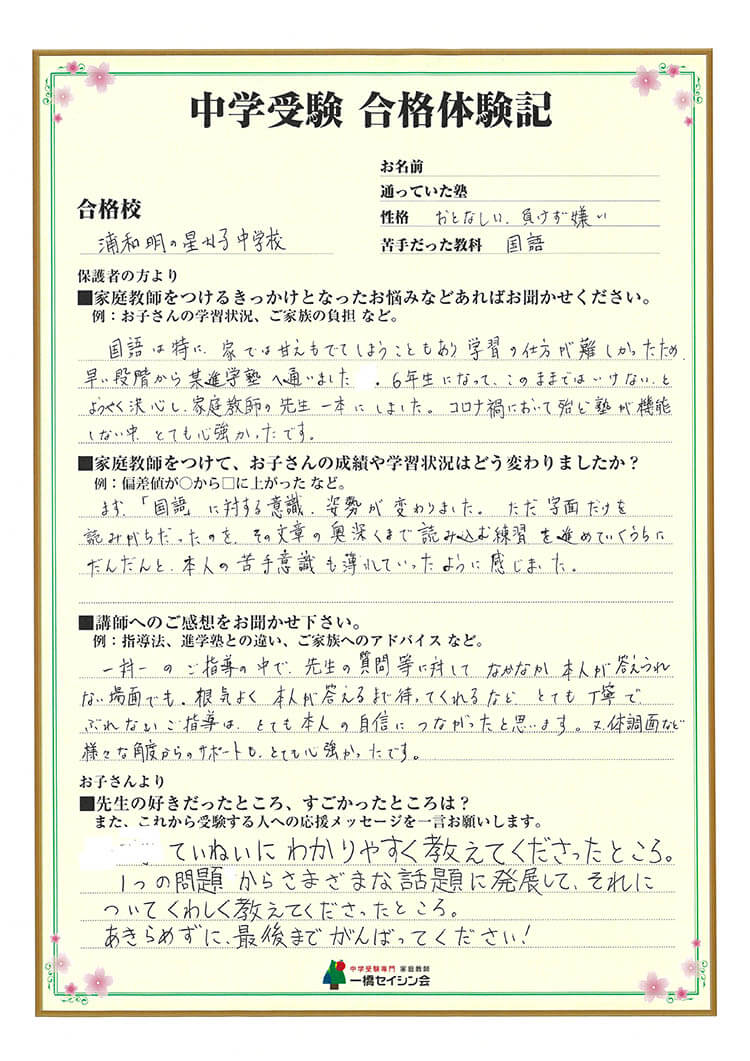 中学受験 合格体験記
お名前
通っていた塾
合格校
性格 おとなしい、負けず嫌い
浦和明の星女子中学校
苦手だった教科 国語
保護者の方より
■家庭教師をつけるきっかけとなったお悩みなどあればお聞かせください。
例：お子さんの学習状況、ご家族の負担 など。
国語は特に、家では甘えもでてしまうこともあり学習の仕方が難しかったため、
早い段階から某進学塾へ通いました 。6年生になって、このままではいけない、と
ようやく決心し、家庭教師の先生一本にしました。コロナ禍において殆ど塾が機能
しない中、とても心強かったです。
■家庭教師をつけて、お子さんの成績や学習状況はどう変わりましたか？
例：偏差値が○から□に上がった など。
まず、「国語」に対する意識、姿勢が変わりました。ただ字面だけを
読みがちだったのを、その文章の奥深くまで読み込む練習を進めていくうちに
だんだんと、本人の苦手意識も薄れていったように感じました。
■講師へのご感想をお聞かせ下さい。
例：指導法、進学塾との違い、ご家族へのアドバイス など。
一対一のご指導の中で、先生の質問等に対して なかなか本人が答えられ
ない場面でも、根気よく本人が答えるまで待ってくれるなど、とても丁寧で
ぶれないご指導は、とても本人の自信につながったと思います。又、体調面など
様々な角度からのサポートも、とても心強かったです。
お子さんより
■先生の好きだったところ、すごかったところは？
また、これから受験する人への応援メッセージを一言お願いします。
ていねいにわかりやすく教えてくださったところ。
1つの問題からさまざまな話題に発展して、それに
ついてくわしく教えてくださったところ。
あきらめずに、最後までがんばってください！
中学受験専門 家庭教師
一橋セイシン会